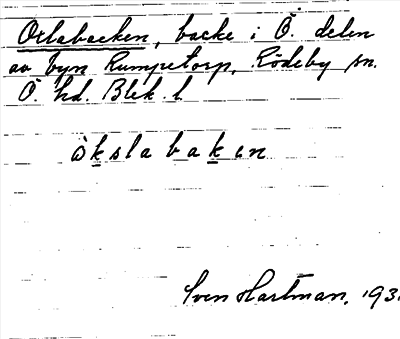 Oxlabacken, backe i Ö. delen
av byn Rumpetorp, Rödeby sn.
Ö. hd. Blek. l.
òkslabaken
Sven Hartman, 193